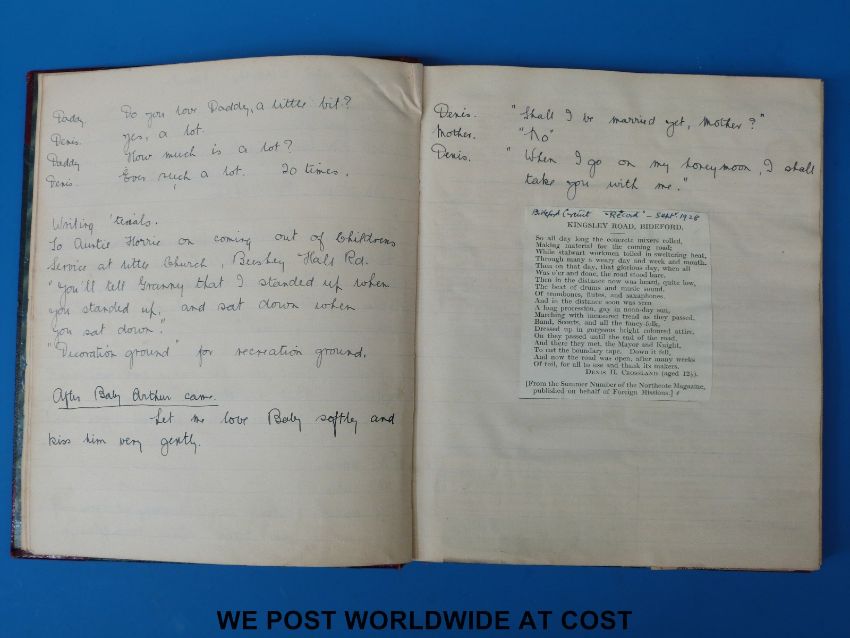 Daddy. Do you love Daddy, a little bit?
Denis. yes, a lot.
Daddy How much is a lot?
Denis. Ever such a lot. 20 times.
Writing 'tirials.
To Auntie Florrie on coming out of Childrens
Service at little Church, Hall Rd.
"You'll tell Granny that I standed up when
you standed up, and sat down when
you sat down"
"Decoration ground" for recreation ground.
After Baby Arthur came.
Let me love Baby softly and
kiss him very gently.
Denis. "Shall I be married yet, Mother?"
Mother. "No"
Denis. "When I go on my honeymoon, I shall
take you with me."
Bideford Circuit "Record" - Sept. 1928
KINGSLEY ROAD, BIDEFORD.
So all day long the concrete mixers rolled,
Making material for the coming road;
While stalwart workmen toiled in sweltering heat,
Through many a weary day and week and month.
Then on that day, that glorious day, when all
Was o'er and done, the road stood bare.
Then in the distance now was heard, quite low,
The beat of drums and music sound.
Of trombones, flutes, and saxaphones.
And in the distance soon was seen
A long procession, gay in noon-day sun,
Marching with measured tread as they passed,
Band, Scouts, and all the fancy-folk,
Dressed up in gorgeous bright coloured attire,
On they passed until the end of the road,
And there they met, the Mayor and Knight,
To cut the boundary tape. Down it fell,
And now the road was open, after many weeks
Of toil, for all to use and thank its makers.
DENIS H. CROSSLAND (aged 12½).
[From the Summer Number of the Northcote Magazine,
published on behalf of Foreign Missions.]
WE POST WORLDWIDE AT COST